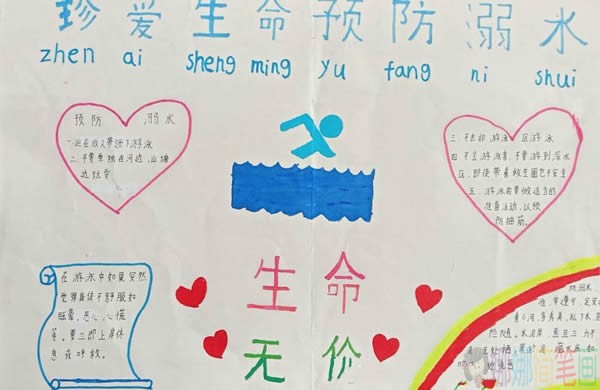 珍爱生命预防溺水
zhen ai sheng ming yu fang ni shui
预防 溺水
一.应在成人带领下游泳
二.不要单独在河边、山塘
边玩耍
三.不去非游泳区游泳
四 不会游泳者,不要游到深水
区,即使带着救生圈也不安全
五.游泳前要做适当的
准备活动,以防
防抽筋。
在游泳中如果突然
觉得身体不舒服如
眩晕、恶心、心慌
等,要立即上岸休
息或呼救。
生命
无价
防溺水